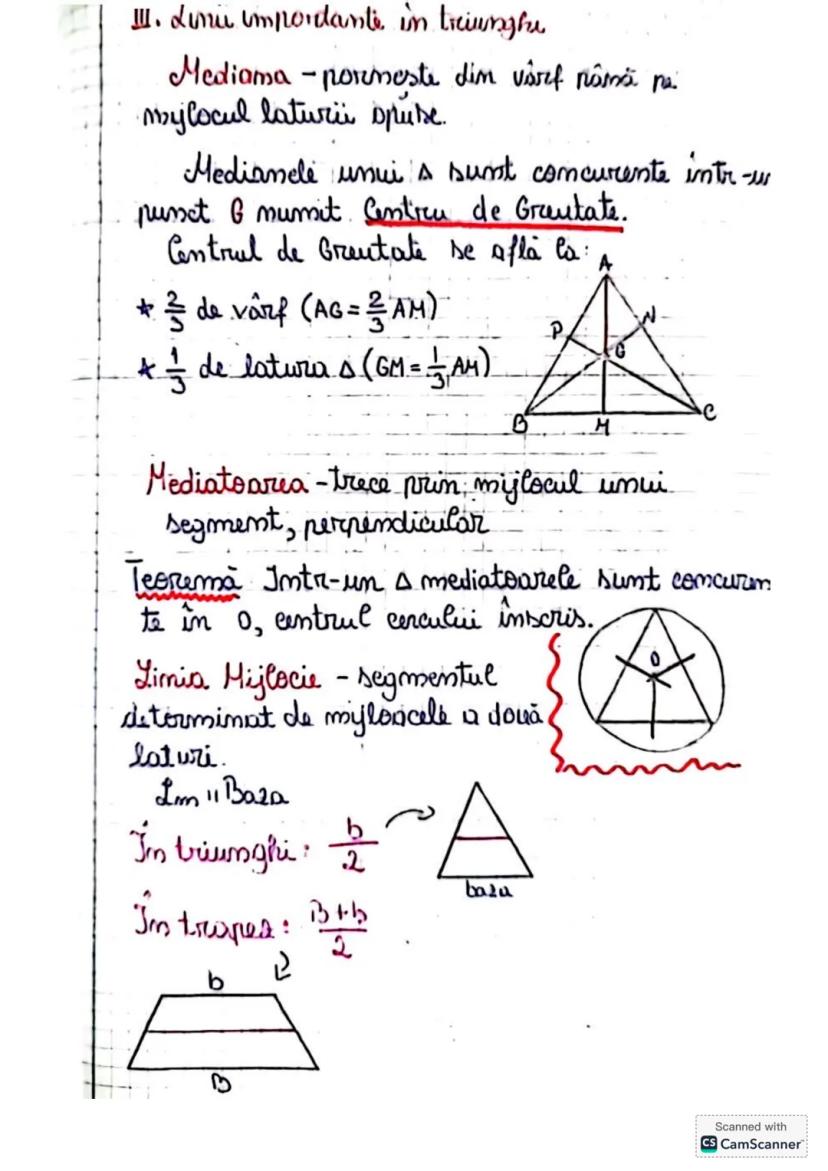 III. Linii importante în triunghi
Mediana - pornește din vârf până pe
mijlocul laturii opuse.
Medianele unui Δ sunt concurente într-un
punct G numit Centru de Greutate.
Centrul de Greutate se află la:
* 2/3 de vârf (AG = 2/3 AM)
* 1/3 de latura Δ (GM = 1/3 AM)
A
P
N
G
B
M
C
Mediatoarea - trece prin mijlocul unui
segment, perpendicular
Teoremă Într-un Δ mediatoarele sunt concuren
te în O, centrul cercului înscris.
O
Linia Mijlocie - segmentul
determinat de mijloacele a două
laturi.
Lm || Baza
În triunghi: b/2
baza
În trapez: B+b/2
b
B
Scanned with
CS CamScanner